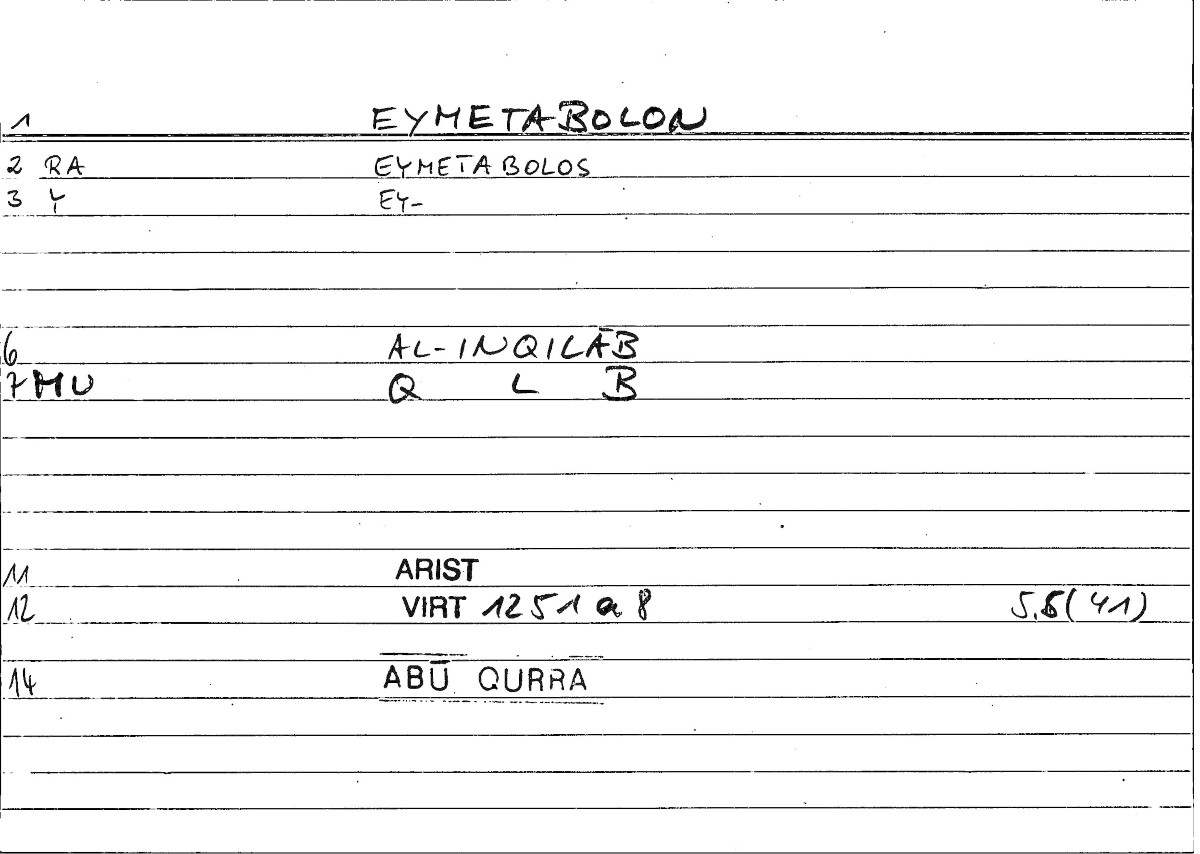 1 EYMETABOLON
2 RA EYMETABOLOS
3 Y EY-
6 AL-INQILĀB
7 MU Q L B
11 ARIST
12 VIRT 1251 a 8 5,6(41)
14 ABŪ QURRA